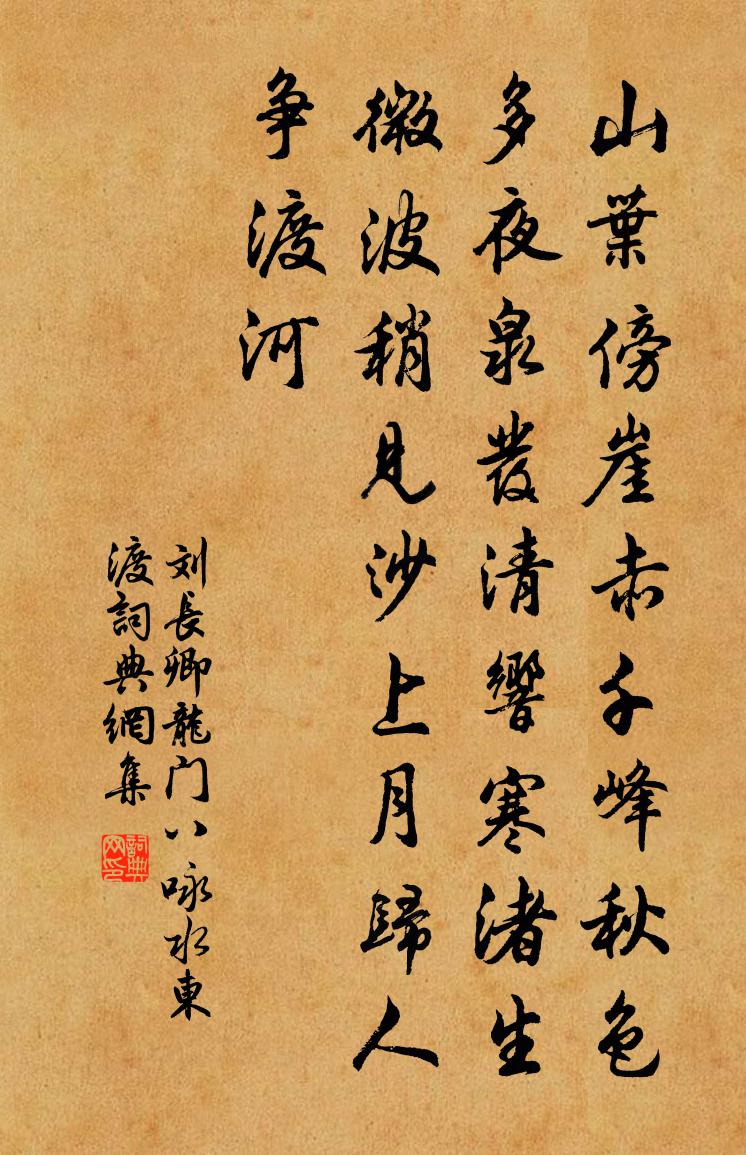 山葉傍崖赤千峰秋色
多夜泉發清響寒渚生
微波稍見沙上月歸人
争渡河
刘長卿龍门八咏水東
渡詞典網集
詞典
网印